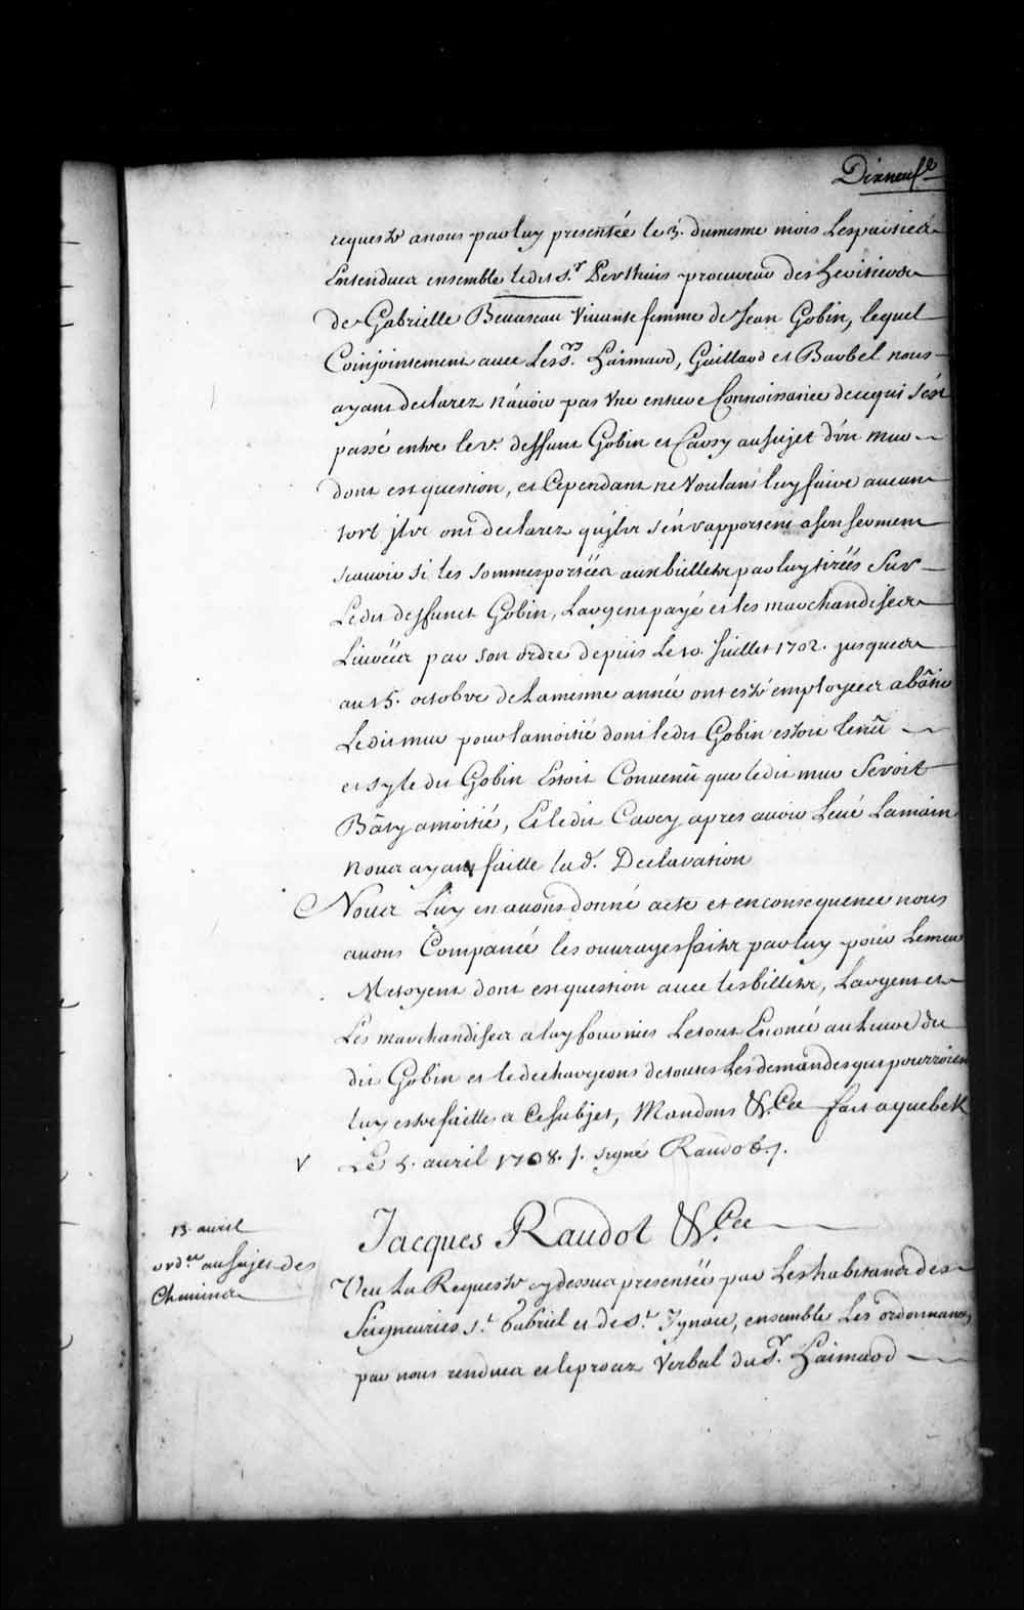 Dixneufe
requeste a nous par luy presentée le 3. du mesme mois Les parties
Entendues ensemble ledit Sr. Perthuis procureur des heritiers
de Gabrielle Beuaseau Viuante femme de Jean Gobin, lequel
Coinjointement auec Les Srs. haimard, Gaillard et Barbel nous
ayant declarez n'áuoir pas Vne entiere Connoissance de ce qui s'est
passé entre le deffunt Gobin et Carsy au sujet d'vn mur
dont est question, et Cependant ne Voulant luy faire aucun
tort jls ont declarez qu'jls s'en rapportent a son serment
scauoir si les sommes portéés aux billets par luy tiréés Sur
Ledit deffunct Gobin, Largent payé et les marchandises
Liuréés par son ordre depuis Le 10. Juillet 1702. jusques
au 15. octobre de La mesme année ont esté employées a bâtir
Ledit mur pour la moitié dont ledit Gobin estoit tenû
et sy le dit Gobin Estoit Conuenû que ledit mur Seroit
Bâty a moitié, Et ledit Carcy apres auoir Leué La main
nous ayant faitte lad. Declaration
Nous Luy en auons donné acte et en consequence nous
auons Compancé les ouurages faits par luy pour Le mur
Metoyent dont est question auec les billets, Largent et
Les marchandises a luy fournies Le tout Enoncé au Liure du
dit Gobin et le dechargeons de toutes Les demandes qui pourroient
luy estre faittes a Ce subjet, Mandons &.Cee fait a quebek
Le 5. auril 1708. /. signé Raudot /.
13. auril
ord.ce au sujet des
Chemins
Jacques Raudot &.Cee
Veu La Requeste cy dessus presentéé par Les habitans des
Seigneuries St. Gabriel et de St. Jgnace, ensemble Les ordonnances
par nous rendues et le procez Verbal du Sr. haimard